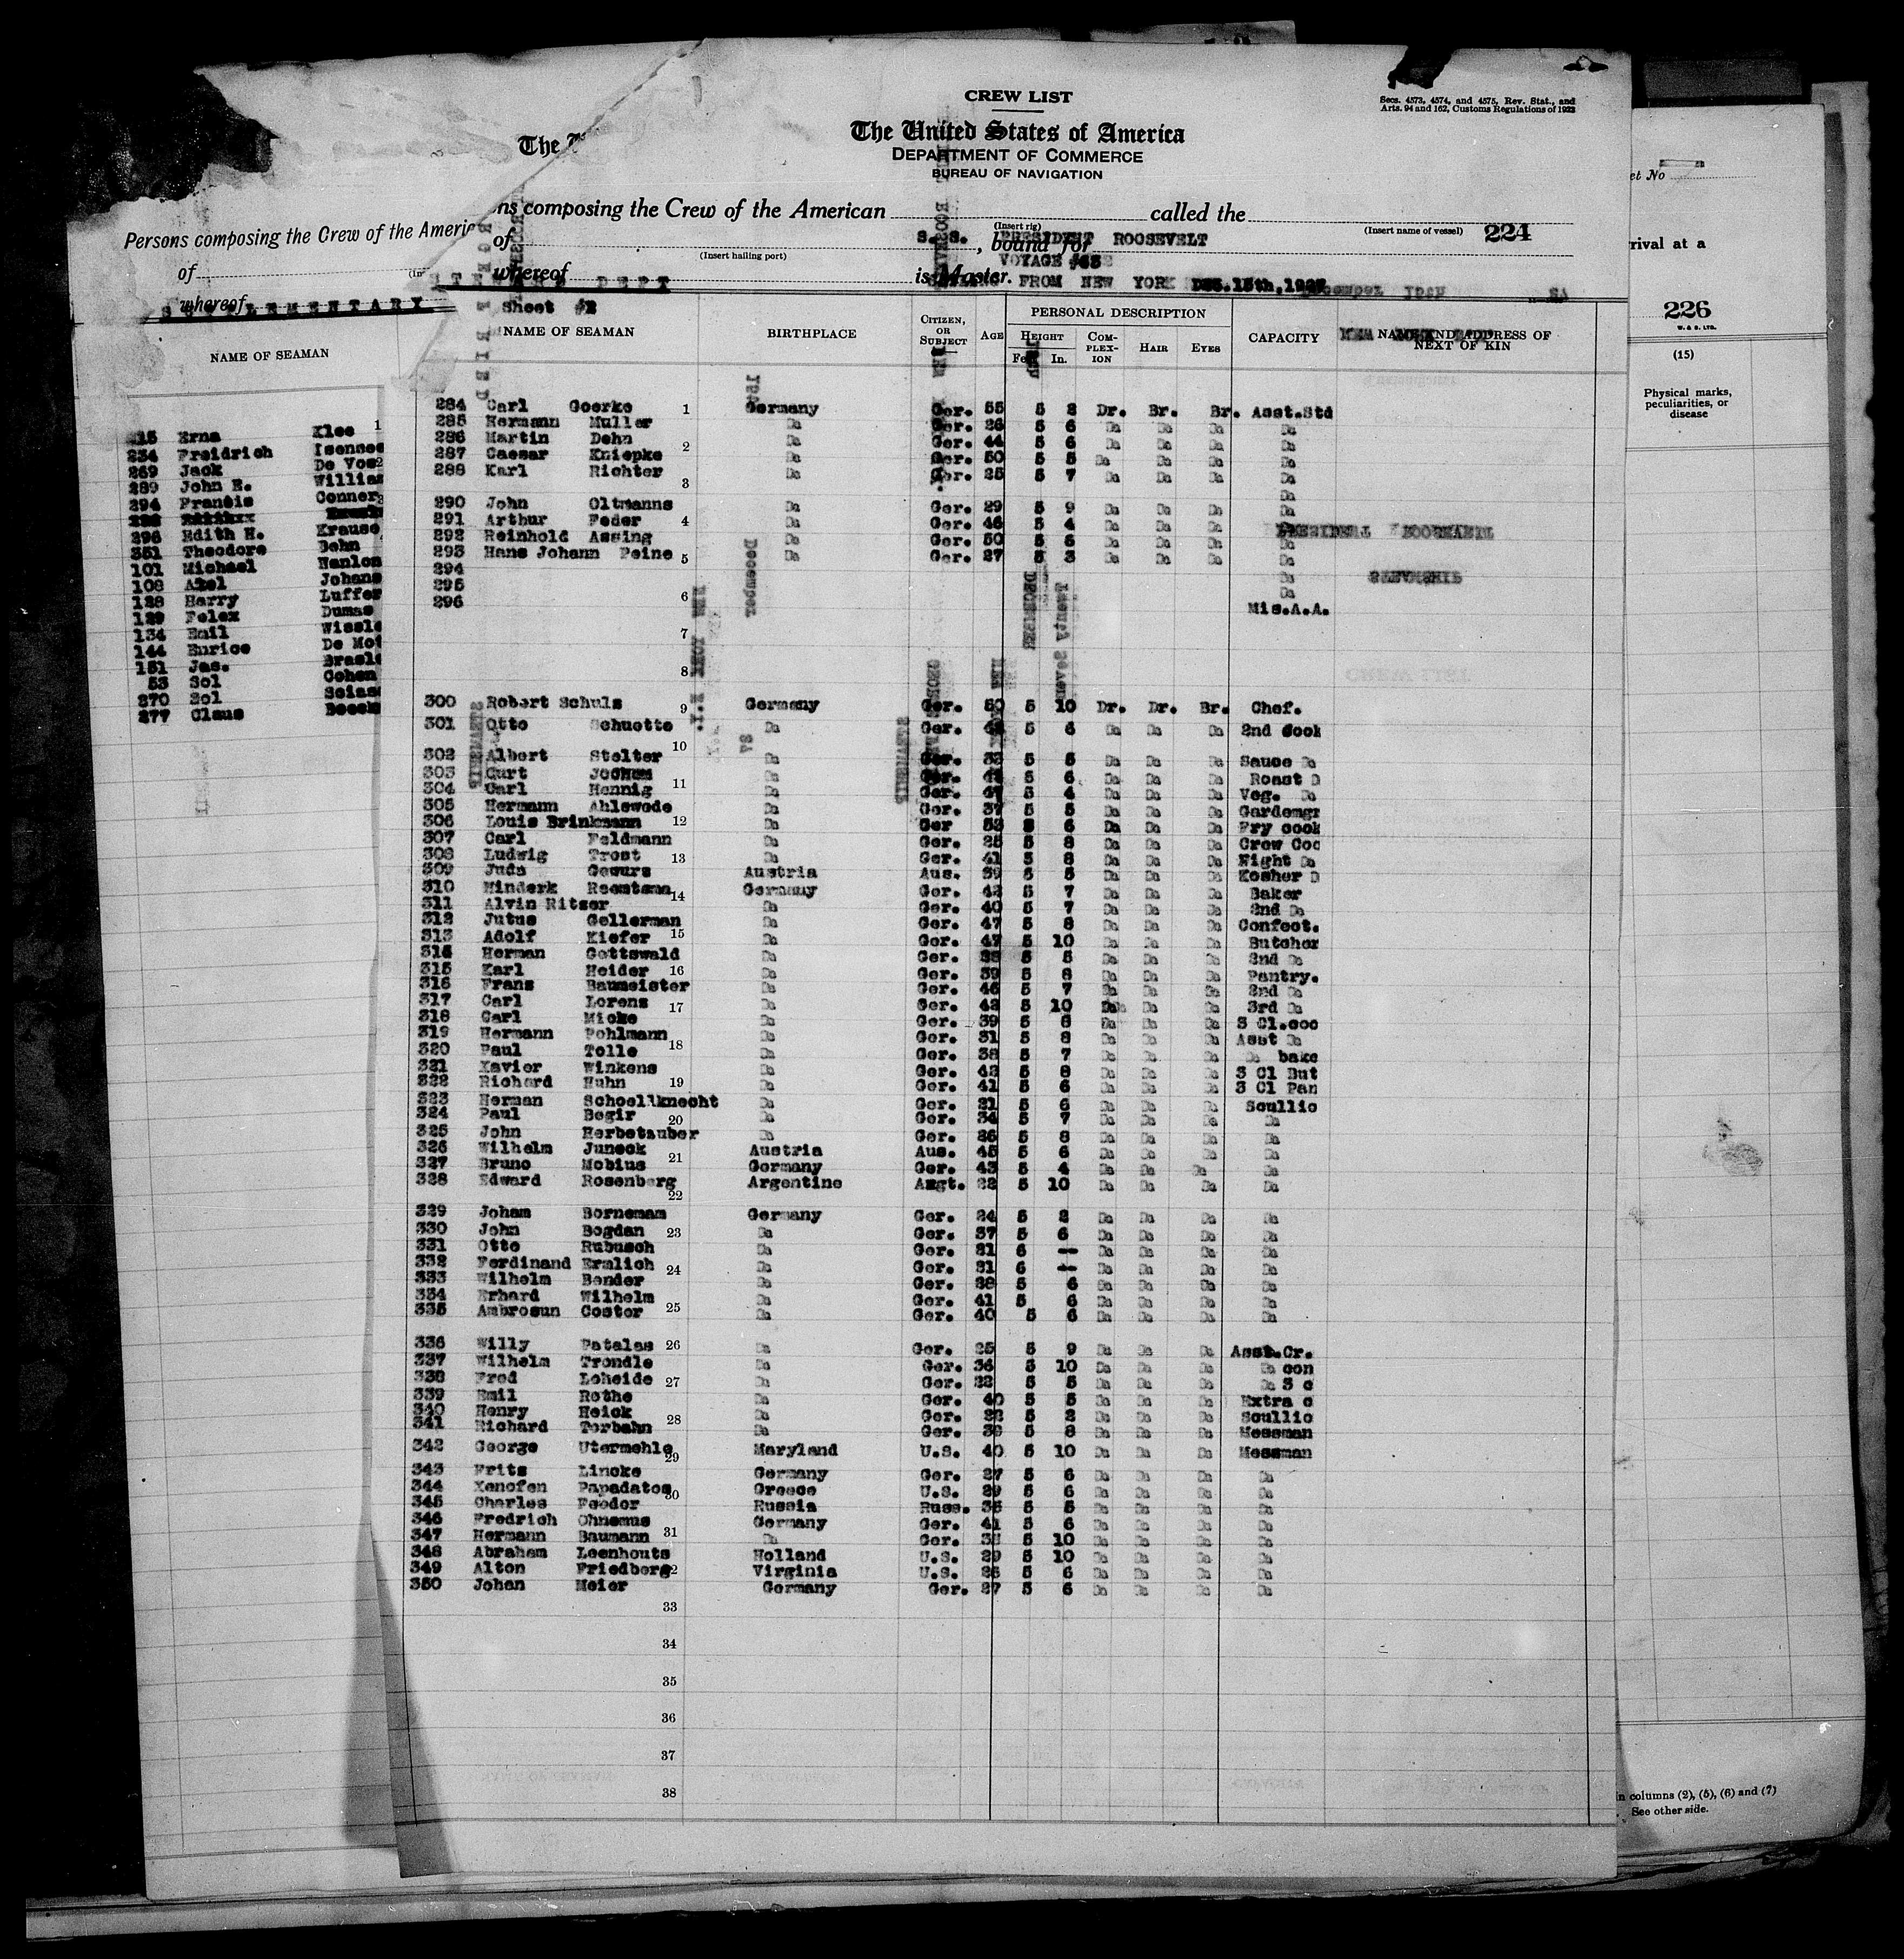 CREW LIST
Secs. 4573, 4574, and 4575, Rev. Stat., and
Arts. 94 and 162, Customs Regulations of 1923
The United States of America
DEPARTMENT OF COMMERCE
BUREAU OF NAVIGATION
ns composing the Crew of the American called the
(Insert rig) (Insert name of vessel) 224
of , bound for
S. S. PRESIDENT ROOSEVELT
(Insert hailing port)
VOYAGE
whereof is Master.
DEPT FROM NEW YORK DEC. 15th, 1927
Sheet #2
NAME OF SEAMAN BIRTHPLACE CITIZEN, OR SUBJECT AGE PERSONAL DESCRIPTION CAPACITY NAME AND ADDRESS OF NEXT OF KIN
HEIGHT COMPLEXION HAIR EYES
Feet In.
284 Carl Goerke 1 Germany Ger. 55 5 8 Dr. Br. Br. Asst.Std
285 Hermann Muller Do Ger. 26 5 6 Do Do Do Do
286 Martin Dehn Do Ger. 44 5 6 Do Do Do Do
287 Caesar Kniepke 2 Do Ger. 50 5 5 Do Do Do Do
288 Karl Richter Do Ger. 25 5 7 Do Do Do Do
3 Do
290 John Oltmanns Do Ger. 29 5 9 Do Do Do Do
291 Arthur Feder 4 Do Ger. 46 5 4 Do Do Do Do
292 Reinhold Assing Do Ger. 50 5 6 Do Do Do Do
293 Hans Johann Peine 5 Do Ger. 27 5 3 Do Do Do Do
294 Do
295 Do
296 6 Mis.A.A.
7
8
300 Robert Schulz 9 Germany Ger. 50 5 10 Dr. Dr. Br. Chef.
301 Otto Schuette Do Ger. 5 6 Do Do Do 2nd Cook
10
302 Albert Stelter Do Ger. 5 5 Do Do Do Sauce Do
303 Curt Jochum Do Ger. 5 6 Do Do Do Roast D
304 Carl Hennig 11 Do Ger. 47 5 4 Do Do Do Veg. Do
305 Hermann Ahlewode Do Ger. 37 5 5 Do Do Do Gardemgr
306 Louis Brinkmann 12 Do Ger 53 5 6 Do Do Do Fry cook
307 Carl Feldmann Do Ger. 25 5 8 Do Do Do Crew Coo
308 Ludwig Trost 13 Do Ger. 41 5 8 Do Do Do Night Do
309 Juda Gewurs Austria Aus. 39 5 5 Do Do Do Kosher D
310 Winderk Reentsma 14 Germany Ger. 42 5 7 Do Do Do Baker
311 Alvin Ritzer Do Ger. 40 5 7 Do Do Do 2nd Do
312 Jutus Gellerman Do Ger. 47 5 8 Do Do Do Confect.
313 Adolf Kiefer 15 Do Ger. 47 5 10 Do Do Do Butcher
314 Herman Gottswald Do Ger. 5 5 Do Do Do 2nd Do
315 Karl Heider 16 Do Ger. 39 5 8 Do Do Do Pantry.
316 Frans Baumeister Do Ger. 46 5 7 Do Do Do 2nd Do
317 Carl Lorens 17 Do Ger. 42 5 10 Do Do Do 3rd Do
318 Carl Micke Do Ger. 39 5 8 Do Do Do 3 Cl.coo
319 Hermann Pohlmann Do Ger. 31 5 8 Do Do Do Asst Do
320 Paul Tolle 18 Do Ger. 38 5 7 Do Do Do Do bake
321 Xavier Winkens Do Ger. 42 5 8 Do Do Do 3 Cl But
322 Richard Huhn 19 Do Ger. 41 5 6 Do Do Do 3 Cl Pan
323 Herman Schoellknecht Do Ger. 21 5 6 Do Do Do Scullio
324 Paul Begir 20 Do Ger. 34 5 7 Do Do Do Do
325 John Herbetzuber Do Ger. 26 5 8 Do Do Do Do
326 Wilhelm Juneck 21 Austria Aus. 45 5 6 Do Do Do Do
327 Bruno Mobius Germany Ger. 43 5 4 Do Do Do Do
328 Edward Rosenberg 22 Argentine Asgt. 22 5 10 Do Do Do Do
329 Joham Bornemam Germany Ger. 24 5 2 Do Do Do Do
330 John Bogdan 23 Do Ger. 37 5 6 Do Do Do Do
331 Otto Rubusch Do Ger. 31 6 -- Do Do Do Do
332 Ferdinand Ermlich 24 Do Ger. 31 6 -- Do Do Do Do
333 Wilhelm Bender Do Ger. 38 5 6 Do Do Do Do
334 Erhard Wilhelm Do Ger. 41 5 6 Do Do Do Do
335 Ambrosun Coster 25 Do Ger. 40 5 6 Do Do Do Do
336 Willy Patalas 26 Do Ger. 25 5 9 Do Do Do Asst.Cr.
337 Wilhelm Trondle Do Ger. 36 5 10 Do Do Do Do con
338 Fred Loheide 27 Do Ger. 22 5 5 Do Do Do Do 3 c
339 Emil Rothe Do Ger. 40 5 5 Do Do Do Extra c
340 Henry Heick 28 Do Ger. 22 5 2 Do Do Do Scullio
341 Richard Terbahn Do Ger. 5 8 Do Do Do Messman
342 George Utermehle 29 Maryland U.S. 40 5 10 Do Do Do Messman
343 Frits Lincke Germany Ger. 27 5 6 Do Do Do Do
344 Xenofen Papadatos 30 Greece U.S. 29 5 6 Do Do Do Do
345 Charles Feodor Russia Russ. 35 5 5 Do Do Do Do
346 Fredrich Ohnemus Germany Ger. 41 5 6 Do Do Do Do
347 Hermann Baumann 31 Do Ger. 5 10 Do Do Do Do
348 Abraham Leenhouts Holland U.S. 29 5 10 Do Do Do Do
349 Alton Friedberg Virginia U.S. 26 5 6 Do Do Do Do
350 Johan Meier Germany Ger. 27 5 6 Do Do Do Do
33
34
35
36
37
38
The
Persons composing the Crew of the Americ
of
whereof
SUPPLEMENTARY
NAME OF SEAMAN
215 Erna Klee 1
234 Freidrich Isensee
269 Jack De Vos 2
289 John E. William
294 Francis Conner
296 Edith H. Krause
351 Theodore Dehn
101 Michael Hanlon
108 Axel Johans
128 Harry Luffer
129 Felex Dumas
134 Emil Wissle
144 Enrico De Mot
151 Jas. Brasle
53 Sol Cohen
270 Sol Seias
277 Claus
et No
rival at a
226
(15)
Physical marks,
peculiarities, or
disease
n columns (2), (5), (6) and (7)
See other side.